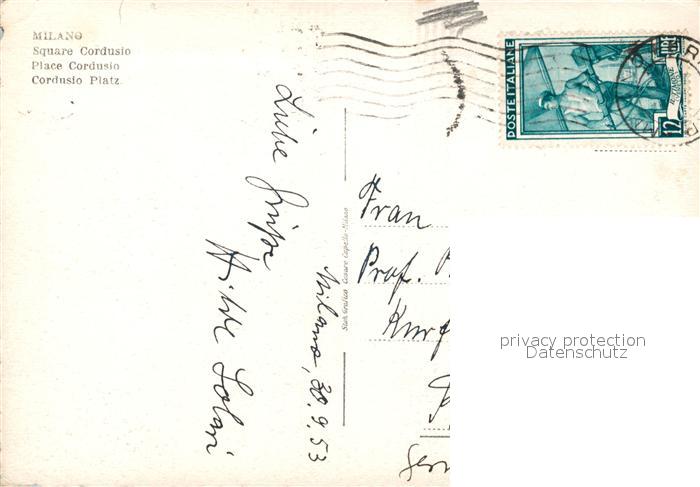 MILANO
Square Cordusio
Place Cordusio
Cordusio Platz
POSTE ITALIANE
LIRE
12
Liebe Grüße
Hilde Solari
Milano, 30.9.53
Stab. Grafico Cesare Capello-Milano
Frau
Prof.
Kurf
Ger
privacy protection
Datenschutz